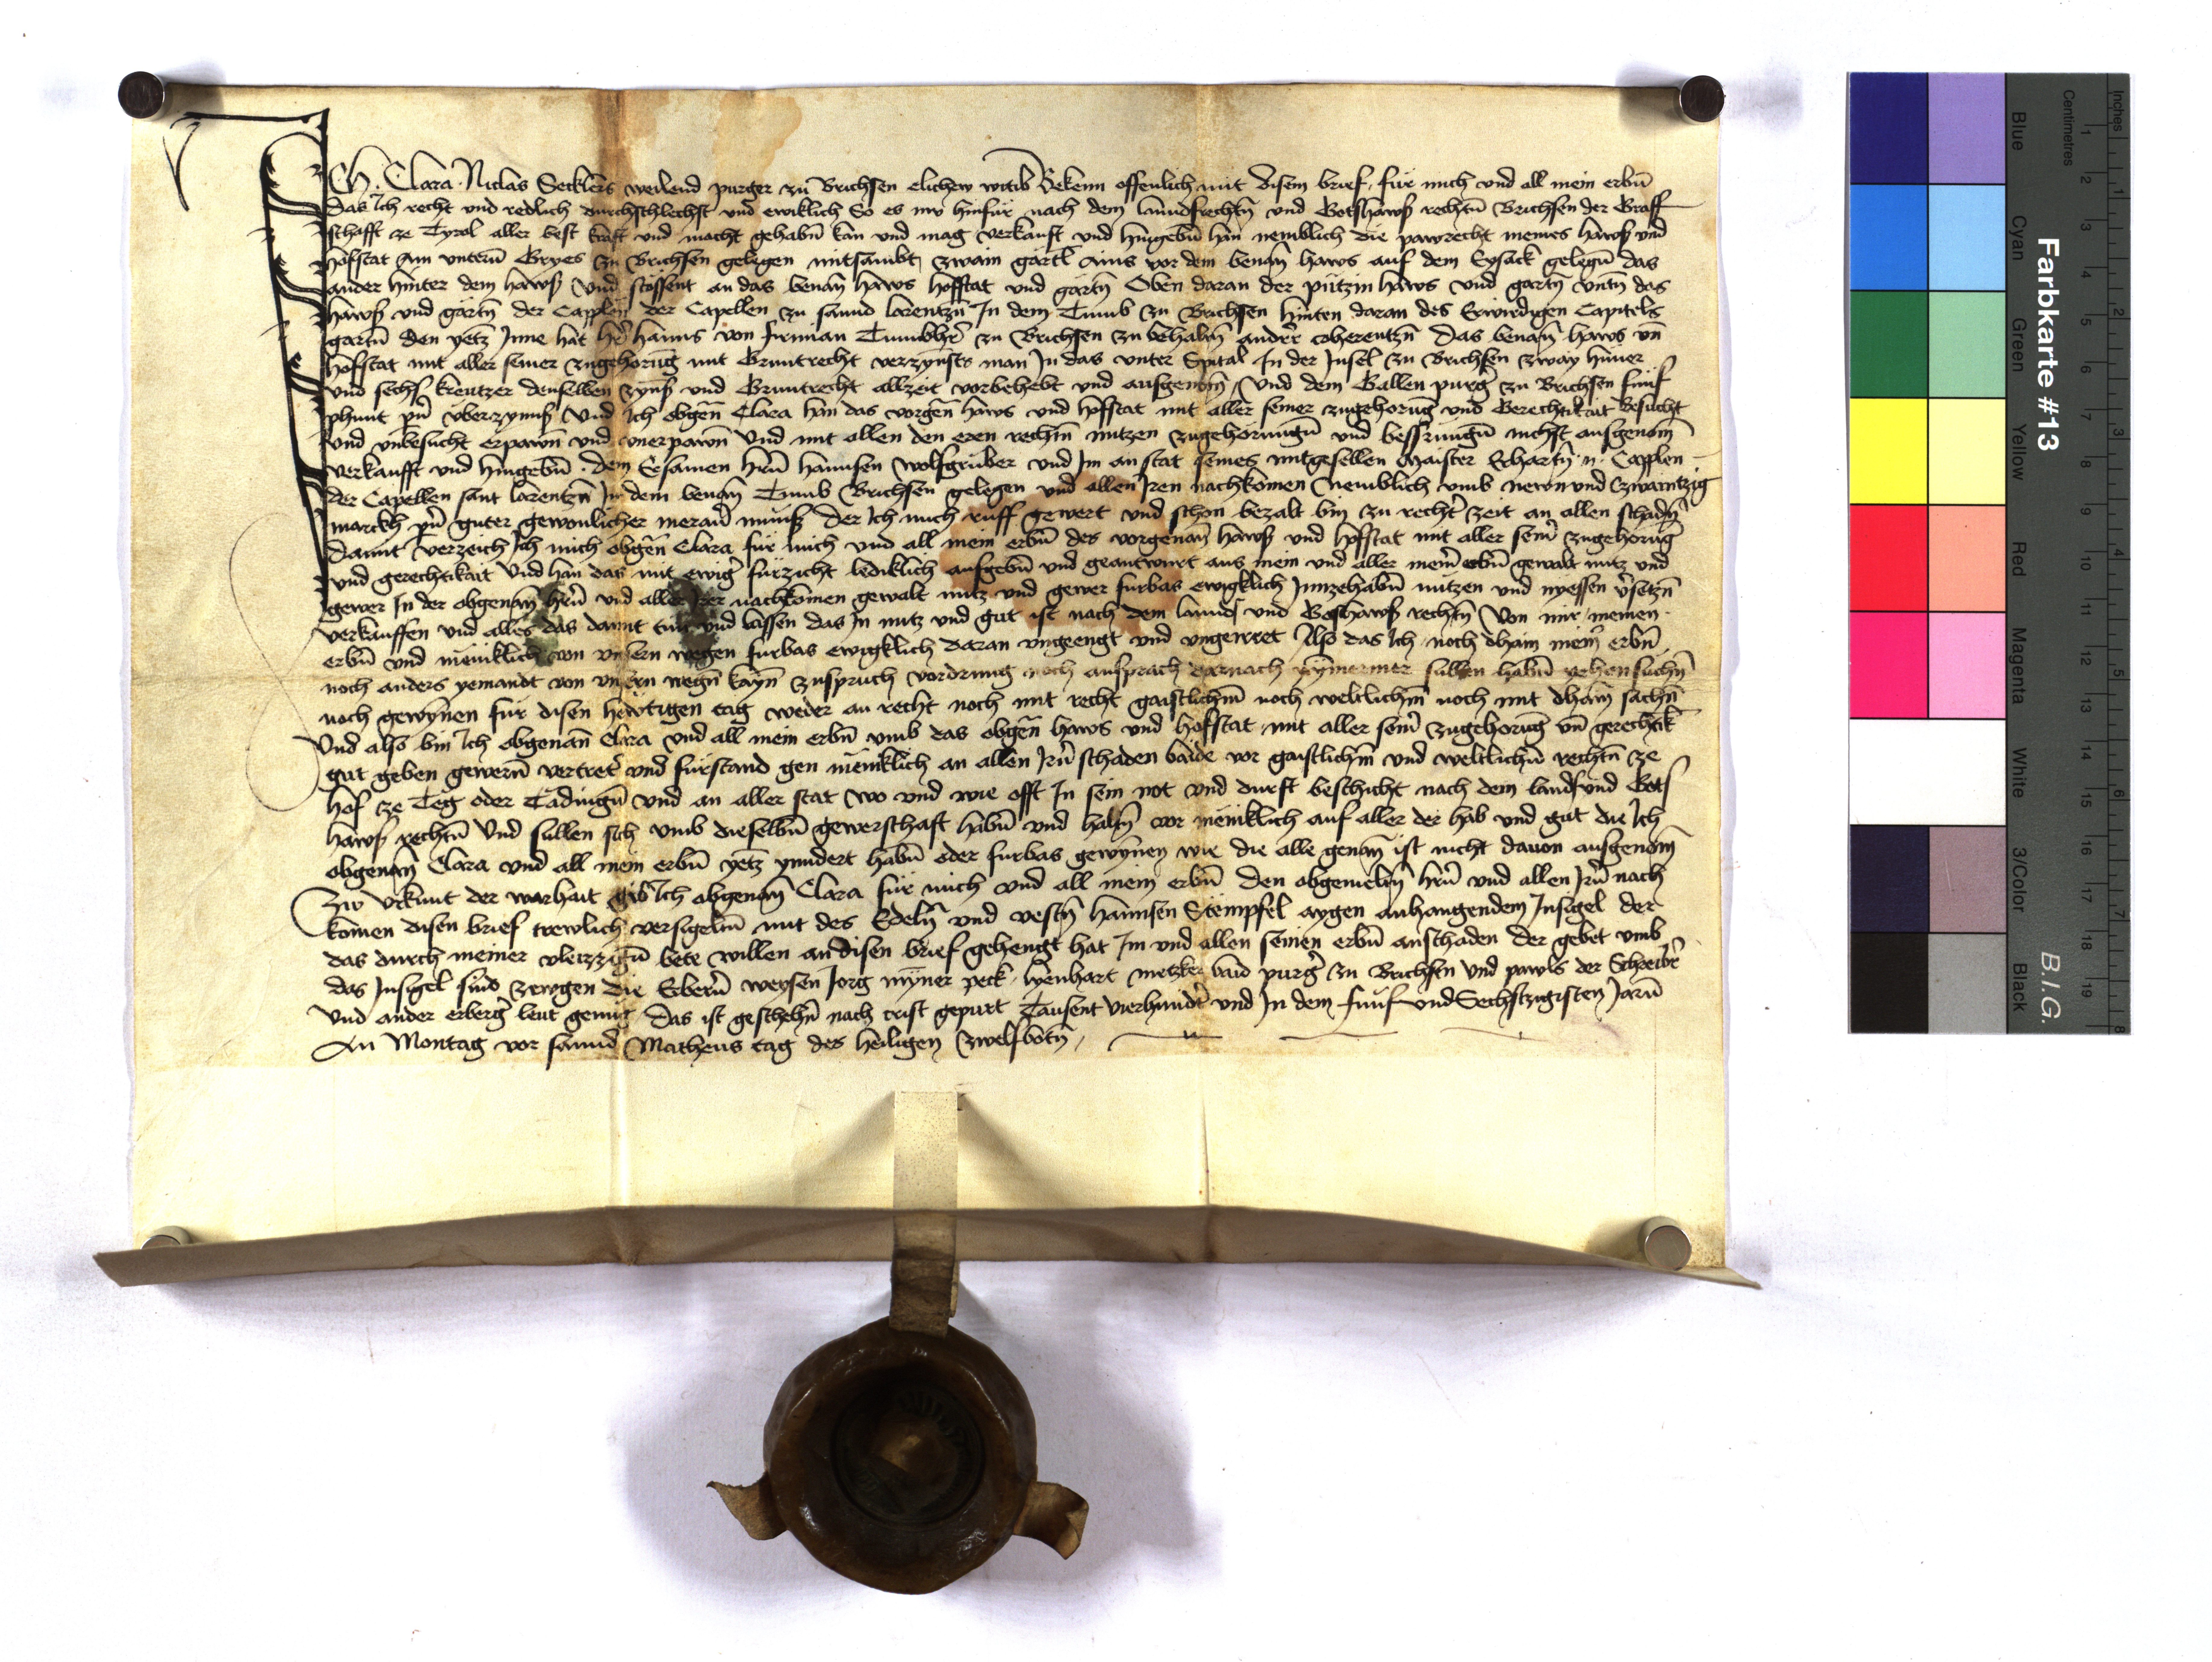 Ich Clara Niclas Secklers weilend purger zu Brichsen elichew witib Bekenn offenlich mit disem brief fur mich und all mein erbn̄
Das Ich recht und redlich durchschlechst und ewiklich So es nw hinfur nach dem lanndsrechtn̄ und Gotshawß rechtn̄ Brichsen der Graff
schafft ze Tyrol aller best krafft und macht gehabn̄ kan und mag verkaufft und hingebn̄ han nemblich die pawrecht meines hawß und
hofstat Am untern̄ Gryes zu Brichsen gelegen mitsambt zwain gartl Ains vor dem benan̄ haws auf dem Eysack gelegn̄ das
ander hinter dem hawß Und stossent an das benan̄ haws hofstat und gartn̄ Oben daran der putzin haws und gartn̄ untn̄ das
hawß und gartn̄ der Capplen der Capellen zu sannd lorentzn̄ In dem Tumb zu Brichsen hinten daran des Erwirdigen Capitels
gartn̄ den yetz Inne hat her hanns von firmian Tumbher zu Brichsen zu behaltn̄ ander coherentzn̄ Das benan̄ haws un̄
hofstat mit aller seiner zugehorūg mit Gruntrecht verzynsts man In das unter Spital In der Insel zu Brichsen zway huner
und sechs kreutzer denselben zynß und Gruntrecht allzeit vorbehebt und ausgenom̄ Und dem Gallen purger zu Brichsen funf
phunt pn̄ uberzynnß Und Ich obgen̄ Clara han das vorgen̄ haws und hofstat mit aller seiner zugehorūg und Gerechtikait Besucht
und unbesucht erpawn̄ und unerpawn̄ Und mit allen den eren rechtn̄ nutzen zugehorungn̄ und bessrungn̄ nichst ausgenom̄
verkaufft und hingebn̄ dem Ersamen hern̄ hannsen Wolfgruber und Im anstat seines mitgesellen Maister Erhartn̄ n Capplen
der Capellen sant lorentzn̄ In dem benan̄ Tumb Brichsen gelegen und allen Iren nachkomen Nemblich umb newn und Zwaintzig
marckh pn̄ guter gewonlicher meran̄ munß der Ich mich ruff gewert und schon bezalt bin zu rechter zeit an allen schadn̄
Damit Verzeich Ich mich obgen̄ Clara fur mich und all mein erbn̄ des vorgenan̄ hawß und hofstat mit aller seiner zugehorūg
und gerechtikait Und han das mit ewiger furzicht lediklich aufgebn̄ und geantwurt aus mein und aller meiner erbn̄ gewalt nutz und
gewer In der obgenan̄ hern̄ und aller Irer nachkomen gewalt nutz und gewer furbas ewigklich Innzehabn̄ nutzen und nyessen versetzn̄
verkauffen und alles das damit tun und lassen das In nutz und gut ist nach dem lannds und Gotshawß rechtn̄ Von mir meinen
erbn̄ und menniklich von unsern wegen furbas ewigklich daran ungeengt und ungeirret Also das Ich noch dhain mein erbn̄
noch anders yemandt von unsern wegn̄ kayn̄ zuspruch vordrung noch ansprach darnach nymermer sullen habn̄ iehen suchn̄
noch gewynen fur disen hewtigen tag weder an recht noch mit recht gaistlichm̄ noch weltlichm̄ noch mit dhain̄ sachn̄
Und also bin Ich obgenan̄ Clara und all mein erbn̄ umb das obgen̄ haws und hofstat mit aller seiner zugehorūg un̄ gerechtik
gut geben gewern̄ vertreter und furstand gen menniklich an allen Irn̄ schaden baide vor gaistlichm̄ und weltlichn̄ rechtn̄ ze
hof ze Teg oder Tadingn̄ und an aller stat wo und wie offt In sein not und durft beschicht nach dem lands und Gots
hawß rechtn̄ Und sullen sich umb dieselbn̄ gewerschaft habn̄ und haltn̄ vor menniklich auf aller der hab und gut die Ich
obgenan̄ Clara und all mein erbn̄ yetz ynndert habn̄ oder furbas gewynen wie die alle genan̄ ist nicht davon ausgenom̄
Zw Urkunt der warhait gib Ich obgenan̄ Clara fur mich und all mein erbn̄ den obgemeltn̄ hern̄ und allen Irn̄ nach
komen disen brief trewlich versigeltn̄ mit des Edeln̄ und vestn̄ hannsen Stempfel aygen anhangendem Insigel der
das durch meiner vleizzign̄ bete willen an disen brief gehengt hat Im und allen seinen erbn̄ anschaden der gebet umb
das Insigel sind zewgen die Erbern̄ weysen Jorg myner peck lienhart metzker baid purger zu Brichsen und pawls der Schreiber
und ander erberger leut genug Das ist geschehn̄ nach crist gepurt Tausent vierhundert und In dem funf und Sechstzigisten Jarn̄
An Montag vor sannd Matheus tag des heiligen Zwelfbotn̄
Farbkarte #13
B.I.G.
Blue Cyan Green Yellow Red Magenta White 3/Color Black
Centimetres 1 2 3 4 5 6 7 8 9 10 11 12 13 14 15 16 17 18 19
Inches 1 2 3 4 5 6 7 8